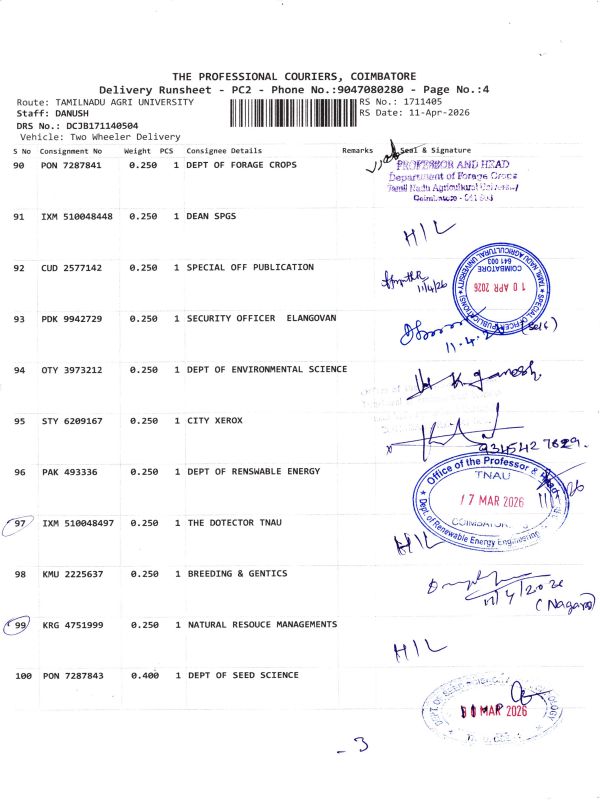 THE PROFESSIONAL COURIERS, COIMBATORE
Delivery Runsheet - PC2 - Phone No.:9047080280 - Page No.:4
Route: TAMILNADU AGRI UNIVERSITY
RS No.: 1711405
Staff: DANUSH
RS Date: 11-Apr-2026
DRS No.: DCJB171140504
Vehicle: Two Wheeler Delivery
S No Consignment No Weight PCS Consignee Details Remarks Seal & Signature
90 PON 7287841 0.250 1 DEPT OF FORAGE CROPS
PROFESSOR AND HEAD
Department of Forage Crops
Tamil Nadu Agricultural University
Coimbatore - 641 003
91 IXM 510048448 0.250 1 DEAN SPGS
H/L
92 CUD 2577142 0.250 1 SPECIAL OFF PUBLICATION
11/4/26
SPECIAL OFFICER (PUBLICATIONS)
TAMIL NADU AGRICULTURAL UNIVERSITY
10 APR 2026
COIMBATORE
641 003
93 PDK 9942729 0.250 1 SECURITY OFFICER ELANGOVAN
11.4.2
(self)
94 OTY 3973212 0.250 1 DEPT OF ENVIRONMENTAL SCIENCE
K. Ganesh
95 STY 6209167 0.250 1 CITY XEROX
9345427829.
96 PAK 493336 0.250 1 DEPT OF RENSWABLE ENERGY
Office of the Professor & Head
TNAU
17 MAR 2026
COIMBATORE
Dept. of Renewable Energy Engineering
97 IXM 510048497 0.250 1 THE DOTECTOR TNAU
H/L
98 KMU 2225637 0.250 1 BREEDING & GENTICS
11/4/2026
(Nagaraj)
99 KRG 4751999 0.250 1 NATURAL RESOUCE MANAGEMENTS
H/L
100 PON 7287843 0.400 1 DEPT OF SEED SCIENCE
DEPT. OF SEED
MAR 2026
- 3